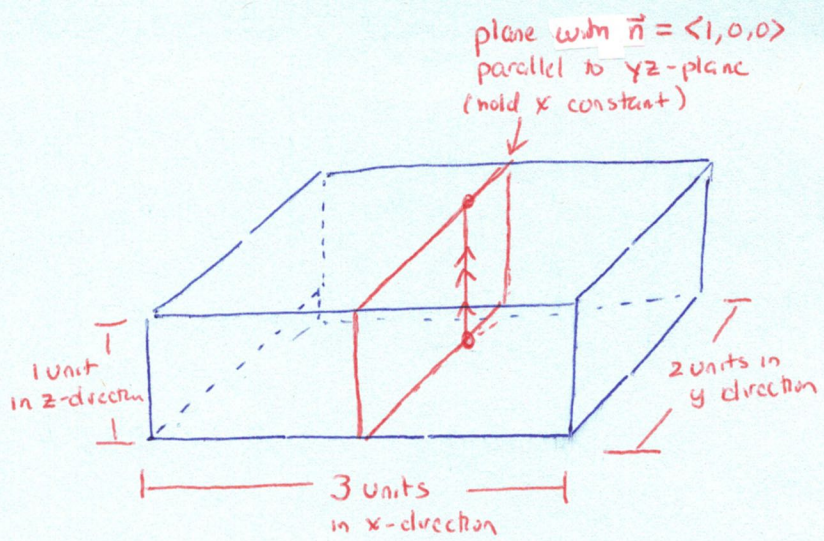 plane with n⃗ = <1,0,0>
parallel to yz-plane
(hold x constant)
1 unit
in z-direction
2 units in
y direction
3 units
in x-direction